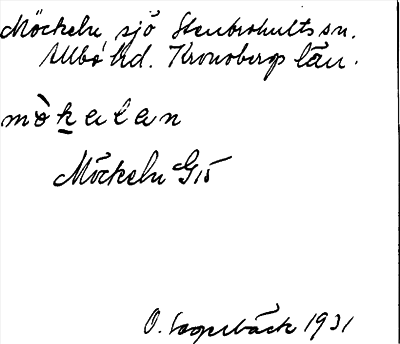 Möckeln sjö Stenbrohults sn.
Allbo hd. Kronobergs län.
mòkalan
Möckeln G15
O. 1931